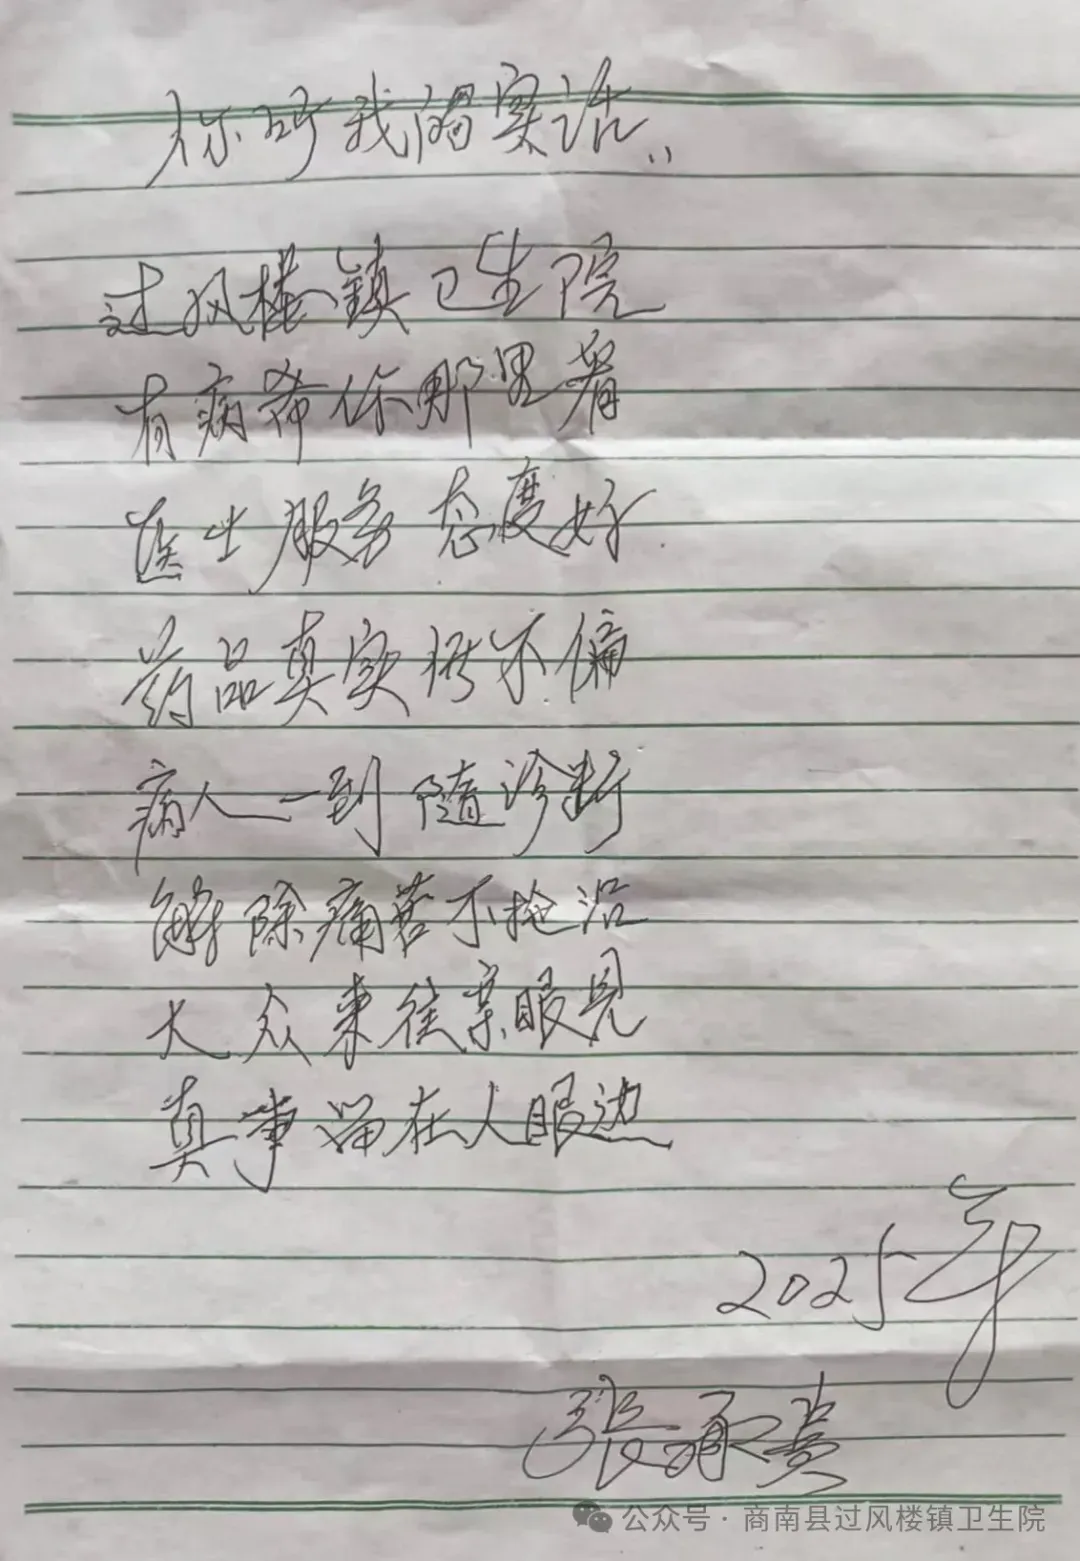 你听我的实话
过风楼镇卫生院
有病希你那里看
医生服务态度好
药品真实从不偏
病人一到随诊断
解除痛苦不拖沿
大众来往亲眼见
真事留在人眼边
2025年
张承贵
公众号·商南县过风楼镇卫生院